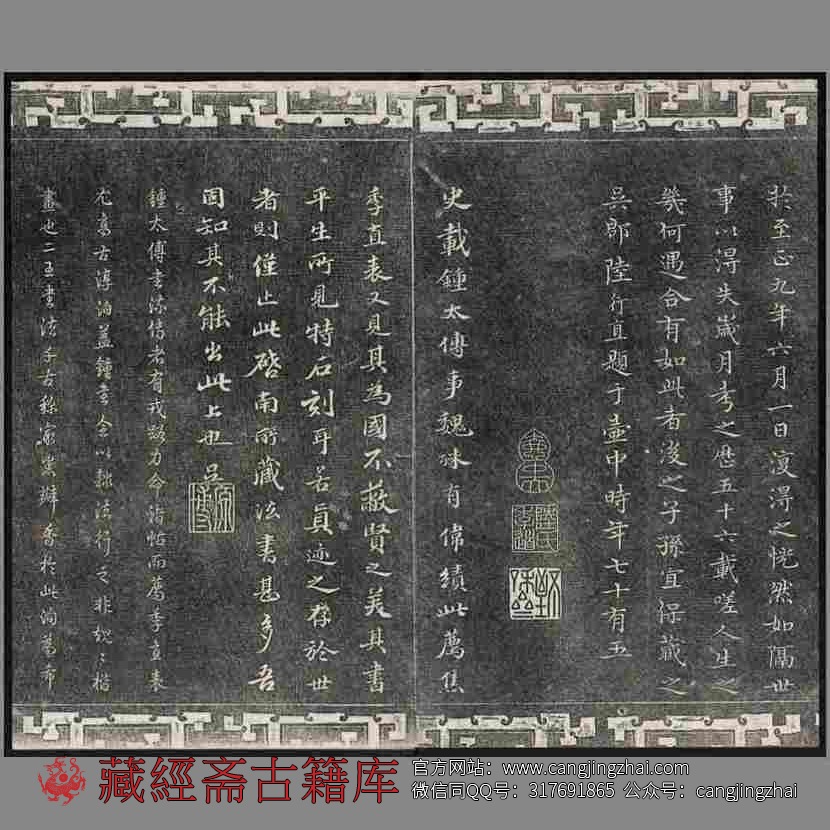 於至正九年六月一日復得之恍然如隔世
事以得失歲月考之歷五十六載嗟人生之
幾何遇合有如此者後之子孫宜保藏之
吳郎陸行直題于壺中時年七十有五
史載鍾太傅事魏殊有偉績此薦焦
季直表又見其為國不蔽賢之美其書
平生所見特石刻耳若真迹之存於世
者則僅止此啓南所藏法書甚多吾
固知其不能出此上也吳
鍾太傅書流傳者有戎路力命諸帖而薦季直表
尤高古淳
畫也二王書法千古
藏經斋古籍库
官方网站：www.cangjingzhai.com
微信同QQ号：317691865 公众号：cangjingzhai